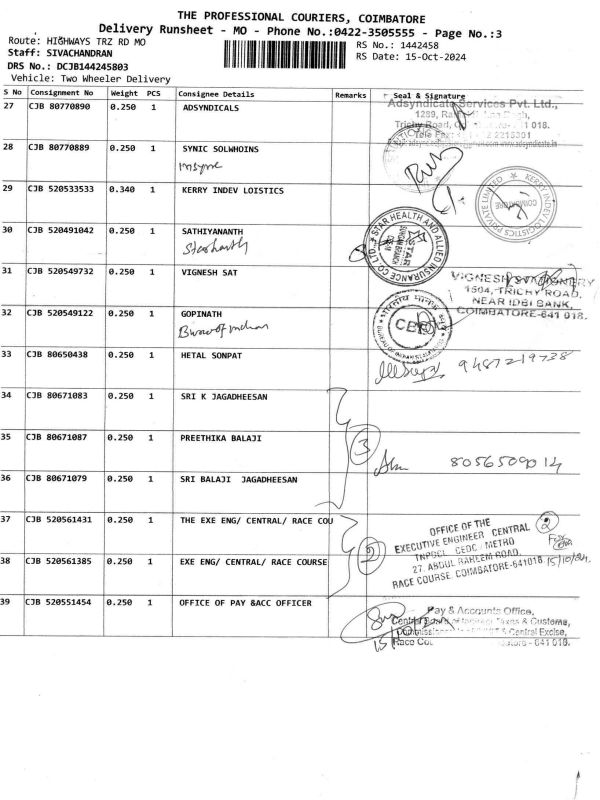 THE PROFESSIONAL COURIERS, COIMBATORE
Delivery Runsheet - MO - Phone No.:0422-3505555 - Page No.:3
Route: HIGHWAYS TRZ RD MO
RS No.: 1442458
Staff: SIVACHANDRAN
RS Date: 15-Oct-2024
DRS No.: DCJB144245803
Vehicle: Two Wheeler Delivery
S No Consignment No Weight PCS Consignee Details Remarks Seal & Signature
27 CJB 80770890 0.250 1 ADSYNDICALS
Adsyndicate Services Pvt. Ltd.,
Trichy Road,
28 CJB 80770889 0.250 1 SYNIC SOLWHOINS
Insyne
29 CJB 520533533 0.340 1 KERRY INDEV LOISTICS
KERRY INDEV LOGISTICS PRIVATE LIMITED
COIMBATORE
30 CJB 520491042 0.250 1 SATHIYANANTH
Starhealth
STAR HEALTH AND ALLIED INSURANCE CO. LTD.
31 CJB 520549732 0.250 1 VIGNESH SAT
VIGNESH STATIONERY
1504, TRICHY ROAD,
NEAR IDBI BANK,
COIMBATORE-641 018.
32 CJB 520549122 0.250 1 GOPINATH
33 CJB 80650438 0.250 1 HETAL SONPAT
9487219738
34 CJB 80671083 0.250 1 SRI K JAGADHEESAN
35 CJB 80671087 0.250 1 PREETHIKA BALAJI
3
8056509014
36 CJB 80671079 0.250 1 SRI BALAJI JAGADHEESAN
37 CJB 520561431 0.250 1 THE EXE ENG/ CENTRAL/ RACE COU
2
OFFICE OF THE
EXECUTIVE ENGINEER CENTRAL
TNPDCL CEDC / METRO
27, ABDUL RAHEEM ROAD,
RACE COURSE, COIMBATORE-641018
2
15/10/24
38 CJB 520561385 0.250 1 EXE ENG/ CENTRAL/ RACE COURSE
39 CJB 520551454 0.250 1 OFFICE OF PAY &ACC OFFICER
Pay & Accounts Office,
Central Board of Indirect Taxes & Customs,
& Central Excise,
Race Cou
641 018.